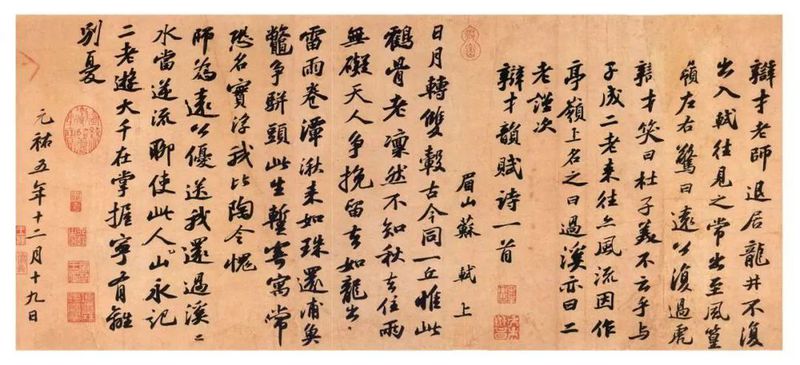 辯才老師退居龍井不復
出入軾往見之常出至風篁
嶺左右驚曰遠公復過虎
辯才笑曰杜子美不云乎與
子成二老来往亦風流因作
亭嶺上名之曰過溪亦曰二
老謹次
辯才韻賦詩一首
眉山蘇軾上
日月轉雙轂古今同一丘惟此
鶴骨老凜然不知秋去住兩
無礙天人争挽留去如龍出
雷雨卷潭湫来如珠還浦魚
鱉争駢頭此生蹔寄寓常
恐名實浮我比陶令愧
師為遠公優送我還過溪〻
水當逆流聊使此人山永記
二老遊大千在掌握寧有離
別憂
元祐五年十二月十九日